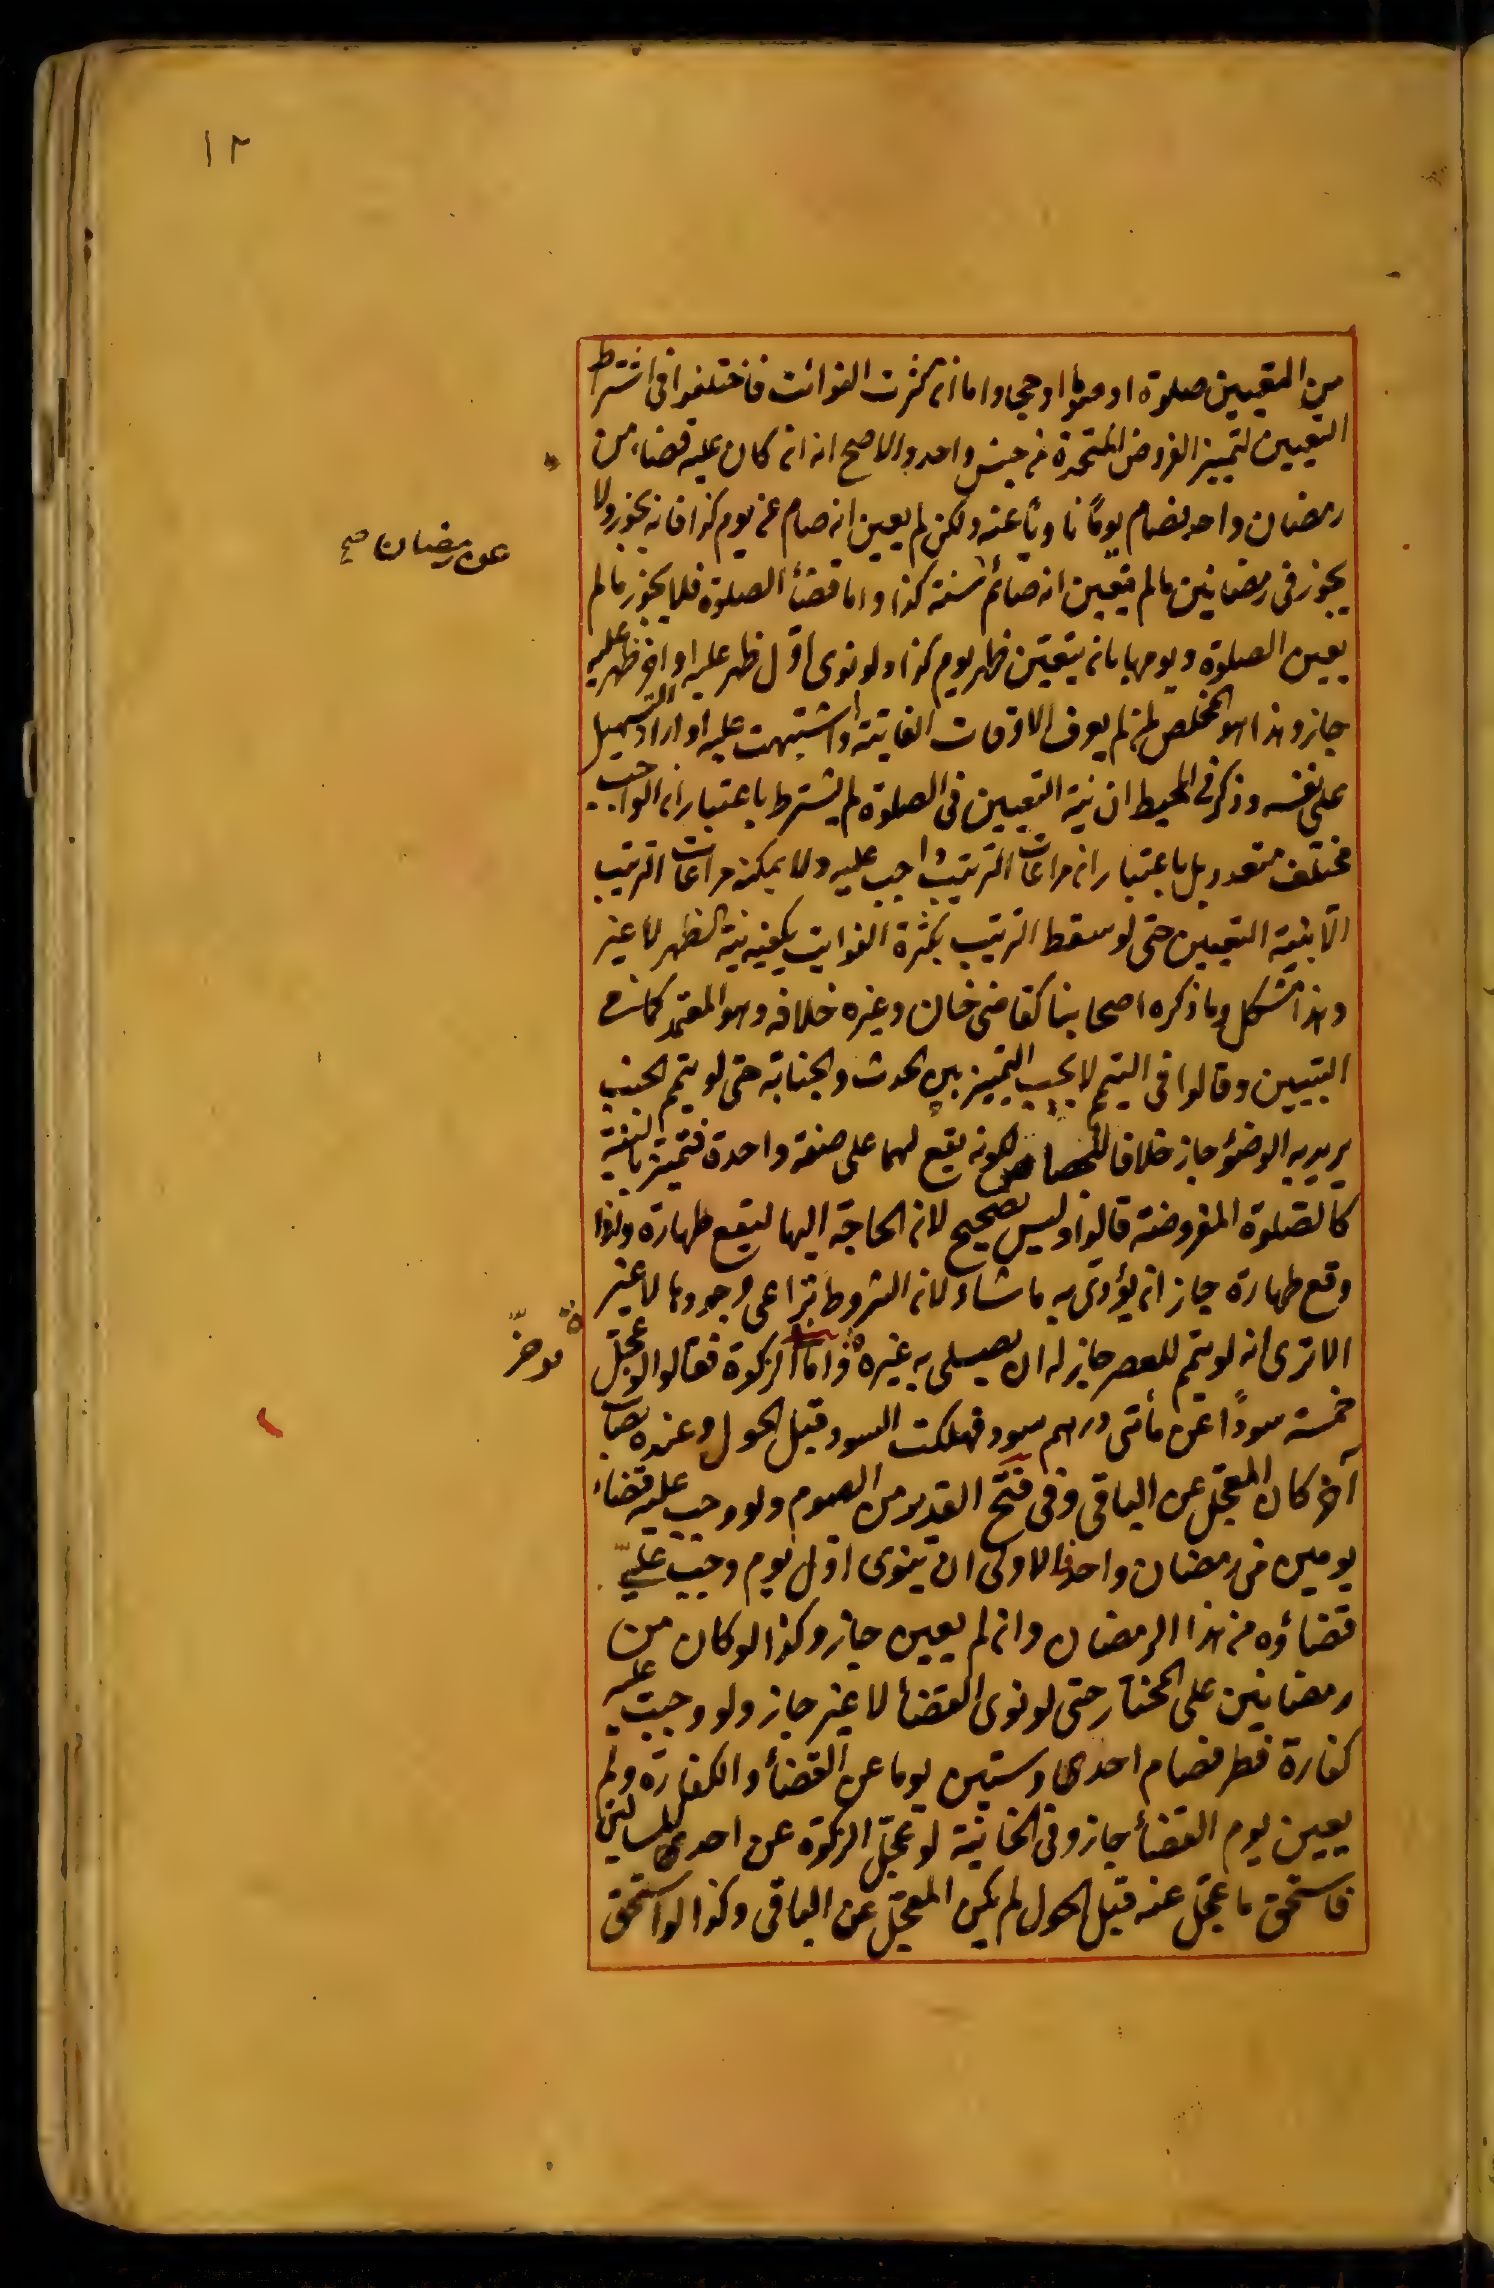 ١٢
من التعيين صلوة او صوما او حجا واما ان كثرت الفوائت فاختلفوا فى اشتراط
التعيين لتمييز الفروض المتحدة من جنس واحد والاصح انه ان كان عليه قضاء من
رمضان واحد فصام يومًا ناويًا عنه ولكن لم يعين انه صام عن يوم كذا فانه يجوز ولا
يجوز فى رمضانين ما لم يتعين انه صائم سنة كذا واما قضأ الصلوة فلا يجوز ما لم
يعين الصلوة ويومها بان يتعين ظهر يوم كذا ولو نوى اوّل ظهر عليه او اخر ظهر عليه
جاز وهذا هو المخلص لمن لم يعرف الاوقات الفايتة او اشتبهت عليه او اراد التسهيل
على نفسه وذكر فى المحيط ان نية التعيين فى الصلوة لم يشترط باعتبار ان الواجب
مختلف متعدد بل باعتبار ان مراعات الترتيب واجب عليه ولا يمكنه مراعات الترتيب
الا بنية التعيين حتى لو سقط الترتيب بكثرة الفوايت يكفيه نية الظهر لا غير
وهذا مشكل وما ذكره اصحابنا كقاضى خان وغيره خلافه وهو المعتمد كما فى
التبيين وقالوا فى التيمم لا يجب التمييز بين الحدث والجنابة حتى لو تيمم الجنب
يريد به الوضؤ جاز خلافا للخصاص لكونه يقع لهما على صفة واحدة فتميز بالنية
كالصلوة المفروضة قالوا وليس بصحيح لان الحاجة اليها ليقع طهارة واذا
وقع طهارة جاز ان يؤدى به ما شاء لان الشروط يراعى وجودها لا غير
الا ترى انه لو تيمم للعصر جاز له ان يصلى به غيره واما الزكوة فقالوا لو عجل
خمسة سودًا عن مأتى درهم سود فهلكت السود قبل الحول وعنده نصاب
آخر كان المعجل عن الباقى وفى فتح القدير من الصوم ولو وجب عليه قضاء
يومين من رمضان واحد فالاولى ان ينوى اوّل يوم وجب عليّ
قضاؤه من هذا الرمضان وان لم يعين جاز وكذا لو كان من
رمضانين على المختار حتى لو نوى القضأ لا غير جاز ولو وجبت عليه
كفارة فطر فصام احدى وستين يوما عن القضأ والكفارة ولم
يعين يوم القضأ جاز وفى الخانية لو عجّل الزكوة عن احد المالين
فاستحق ما عجل عنه قبل الحول لم يكن المعجّل عن الباقى وكذا لو استحق
عن رمضان صح